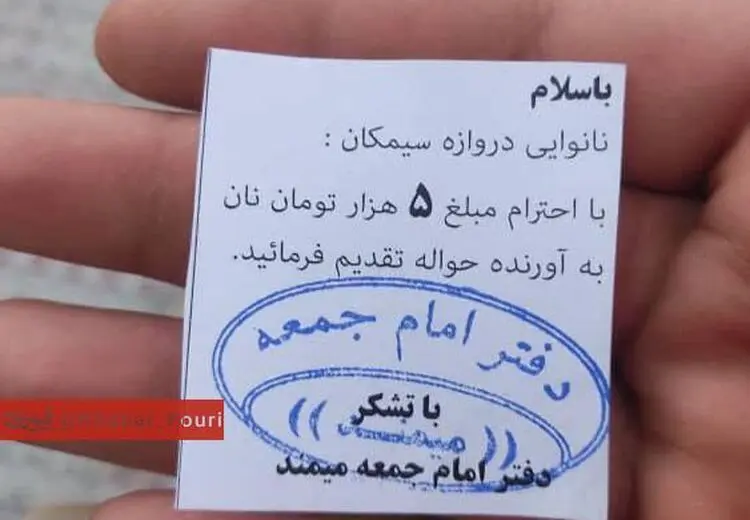 باسلام
نانوایی دروازه سیمکان :
با احترام مبلغ ۵ هزار تومان نان
به آورنده حواله تقدیم فرمائید.
دفتر امام جمعه
با تشکر
دفتر امام جمعه میمند